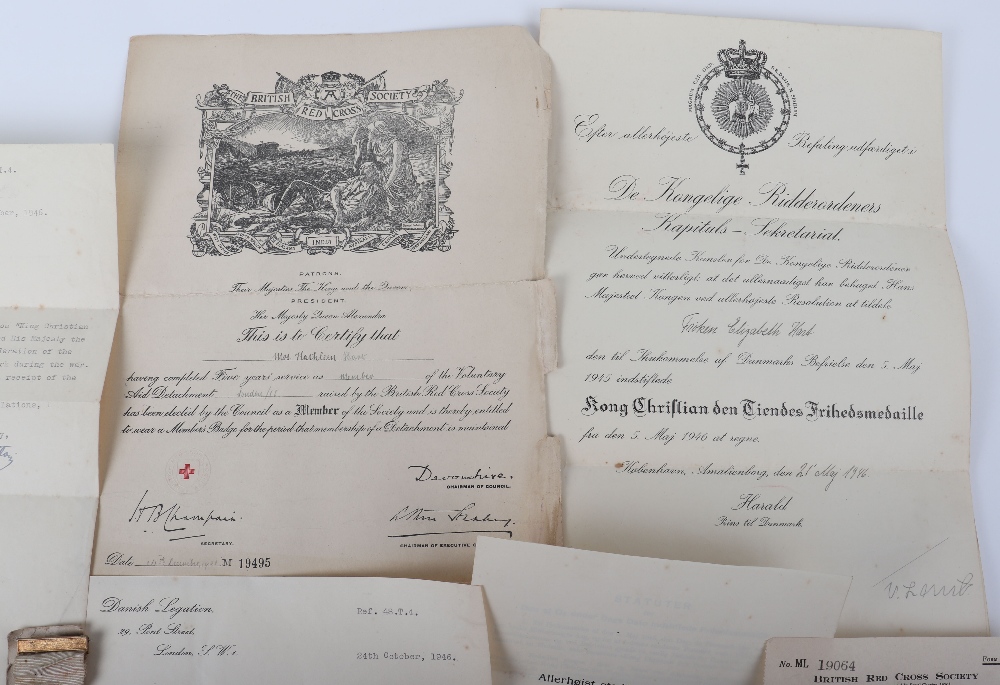 THE BRITISH RED CROSS SOCIETY
INDIA
PATRONS.
Their Majesties The King and the Queen.
PRESIDENT.
Her Majesty Queen Alexandra
This is to Certify that
having completed Five years' service as member of the Voluntary
Aid Detachment raised by the British Red Cross Society
has been elected by the Council as a Member of the Society and is thereby entitled
to wear a Member's Badge for the period that membership of a Detachment is maintained
Devonshire.
CHAIRMAN OF COUNCIL.
SECRETARY.
CHAIRMAN OF EXECUTIVE
Date M 19495
Efter allerhøjeste Befaling udfærdiget i
De Kongelige Ridderordeners
Kapituls-Sekretariat.
Undertegnede Kansler for De Kongelige Ridderordener
gør herved vitterligt, at det allernaadigst har behaget Hans
Majestæt Kongen ved allerhøjeste Resolution at tildele
Frøken Elizabeth
den til Ihukommelse af Danmarks Befrielse den 5. Maj
1945 indstiftede
Kong Christian den Tiendes Frihedsmedaille
fra den 5. Maj 1946 at regne.
København, Amalienborg, den 21 Maj 1946
Harald
Prins til Danmark.
1946.
King Christian
His Majesty the
during the war.
receipt of the
Danish Legation,
29, Pont Street,
London, S.W.1.
Ref. 48.T.4.
24th October, 1946.
Allerhøjst
No. ML 19064
BRITISH RED CROSS SOCIETY